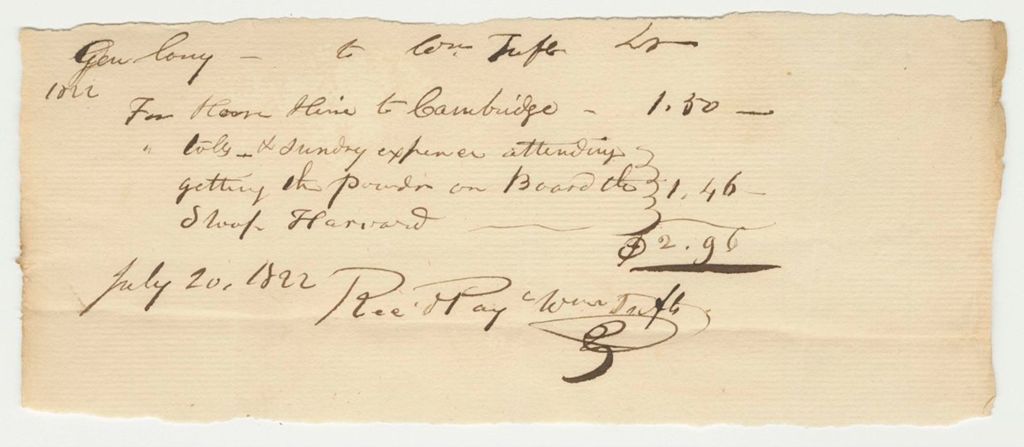 Gen Cony - to Wm Tufts Dr
1822
For Horse Hire to Cambridge - 1.50 -
" tolls - & sundry expences attending
getting the powder on Board the 1.46 -
Sloop Harvard
$2.96
July 20, 1822 Rec'd Pay Wm Tufts